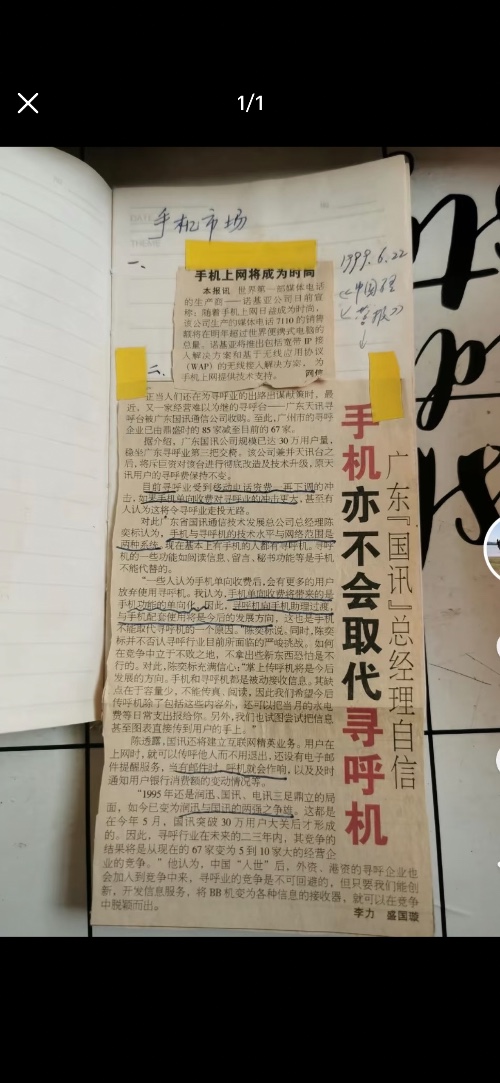 1/1
DATE
手机市场
THEME
1999.6.22
《中国经
营报》
一、
手机上网将成为时尚
本报讯 世界第一部媒体电话
的生产商——诺基亚公司目前宣
称：随着手机上网日益成为时尚，
该公司生产的媒体电话7110的销售
额将在明年超过世界便携式电脑的
总量。诺基亚将推出包括宽带IP接
入解决方案和基于无线应用协议
（WAP）的无线接入解决方案，为
手机上网提供技术支持。
二、
手机亦不会取代寻呼机
广东『国讯』总经理自信
正当人们还在为寻呼业的出路出谋献策时，最
近，又一家经营难以为继的寻呼台——广东天讯寻
呼台被广东国讯通信公司收购。至此，广州市的寻呼
企业已由鼎盛时的85家减至目前的67家。
据介绍，广东国讯公司规模已达30万用户量，
稳坐广东寻呼业第三把交椅。该公司兼并天讯台之
后，将斥巨资对该台进行彻底改造及技术升级，原天
讯用户的寻呼费保持不变。
目前寻呼业受到移动电话资费一再下调的冲
击，如果手机单向收费对寻呼业的冲击更大，甚至有
人认为这将令寻呼业走投无路。
对此广东省国讯通信技术发展总公司总经理陈
奕标认为，手机与寻呼机的技术水平与网络范围是
两种系统，现在基本上有手机的人都有寻呼机。寻呼
机的一些功能如阅读信息、留言、秘书功能等是手机
不能代替的。
“一些人认为手机单向收费后，会有更多的用户
放弃使用寻呼机。我认为，手机单向收费将带来的是
手机功能的单向化。因此，寻呼机向手机助理过渡，
与手机配套使用将是今后的发展方向，这也是手机
不能取代寻呼机的一个原因。”陈奕标说。同时，陈奕
标并不否认寻呼行业目前所面临的严峻挑战。如何
在竞争中立于不败之地，不拿出些新东西恐怕是不
行的。对此，陈奕标充满信心：“掌上传呼机将是今后
发展的方向。手机和寻呼机都是被动接收信息。其缺
点在于容量少，不能传真、阅读，因此我们希望今后
传呼机除了包括这些内容外，还可以把当月的水电
费等日常支出报给你。另外，我们也试图尝试把信息
甚至图表直接传到用户的手上。”
陈透露，国讯还将建立互联网精英业务。用户在
上网时，就可以传呼他人而不用退出，还设有电子邮
件提醒服务，当有邮件时，呼机就会作响，以及及时
通知用户银行消费额的变动情况等。
“1995年还是润迅、国讯、电讯三足鼎立的局
面，如今已变为润迅与国讯的两强之争雄。这都是
在今年5月，国讯突破30万用户大关后才形成
的。因此，寻呼行业在未来的二三年内，其竞争的
结果将是从现在的67家变为5到10家大的经营企
业的竞争。”他认为，中国“入世”后，外资、港资的寻呼企业也
会加入到竞争中来，寻呼业的竞争是不可回避的，但只要我们能创
新，开发信息服务，将BB机变为各种信息的接收器，就可以在竞争
中脱颖而出。
李力 盛国璇